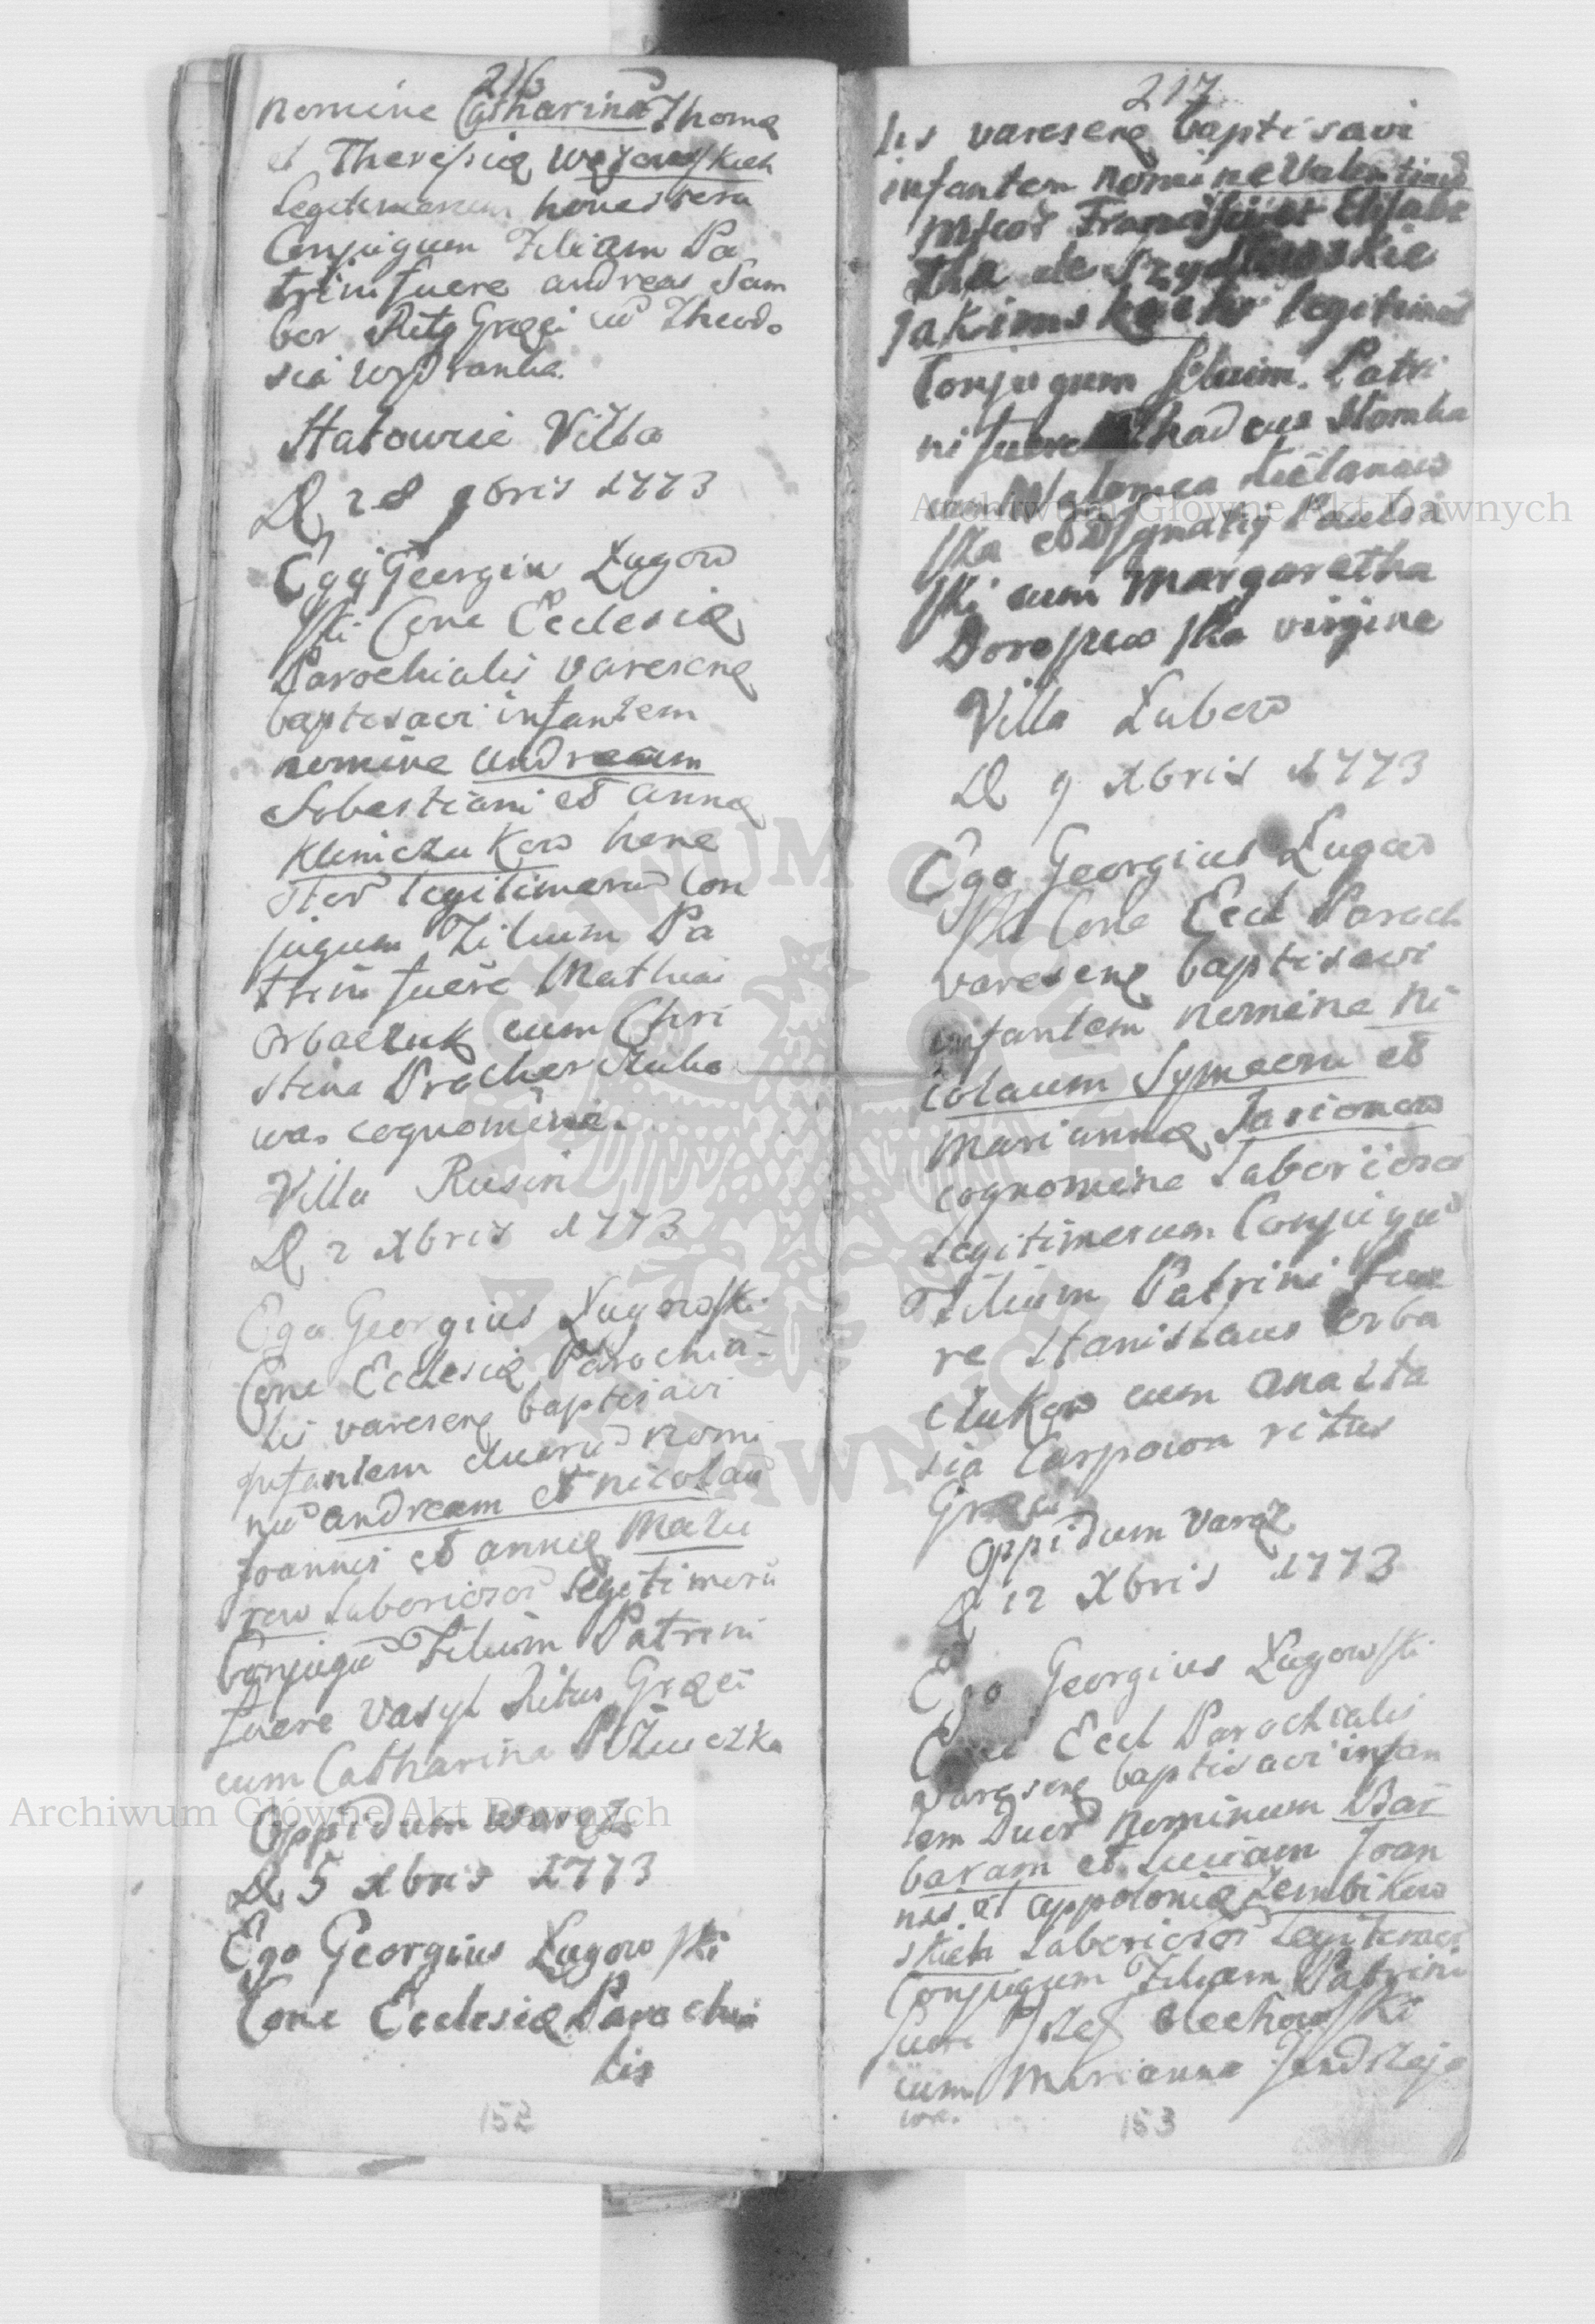 216
nomine Catharina Thomę
et Theresię
Legitimorum honestoru
Conjugum Filiam Pa
trini fuere andreas Sam
bor Ritg Gręci cū Theodo
sia
Hatowie Villa
D 28 9bris 1773
Ego Georgiu Ługow
ski Cone Ecclesię
Parochialis varesenę
baptisavi infantem
nomine andream
Sebastiani et annę
Kliniczukow hone
stor legitimorū Con
jugum Filium Pa
trini fuere Mathias
orbaczuk cum Chri
stina
was cognomine.
Villa Rusin
D 2 Xbris 1773
Ego Georgius Ługowski
Cone Ecclesię Parochia
lis varesenę baptisavi
Jnfantem duorū nomi
nū andream et nicolaū
Joannis et annę Mazu
row Laboriosor Legitimorū
Conjugū Filium Patrini
fuere Vasyl Ritus Gręci
cum Catharina
Oppidum Waręż
D 5 Xbris 1773
Ego Georgius Ługowski
Cone Ecclesię Parochia
lis
152
217
lis varesenę baptisavi
infantem nomine Valentinū
Francisci et Elisabe
tha de Szydłowskie
legitimor
Conjugum filium. Patri
ni fuere Thadeus Słomka
cum
ska et Jgnatiy Pawłow
ski cum Margaretha
virgine
Villa Lubow
D 9 Xbris 1773
Ego Georgius Ługow
ski Cone Eccl Paroch
varesenę baptisavi
infantem nomine Ni
colaum Symeonu et
Mariannę Jarionow
cognomine Laboriosor
Legitimorum Conjugū
Filium Patrini fue
re Stanislaus orba
czukow cum anasta
sia Carpowa ritus
Gręci
Oppidum Varęż
D 12 Xbris 1773
Ego Georgius Ługowski
Cone Eccl Parochialis
varesenę baptisavi infan
tem Duor Nominum Bar
baram et Luciam Joan
nis et appolonię Zembikow
skich Laboriosor Legitimor
Conjugum Filiam Patrini
fuere Jozef
cum Marianna Jendrzejo
wa.
153
Archiwum Główne Akt Dawnych
Archiwum Główne Akt Dawnych